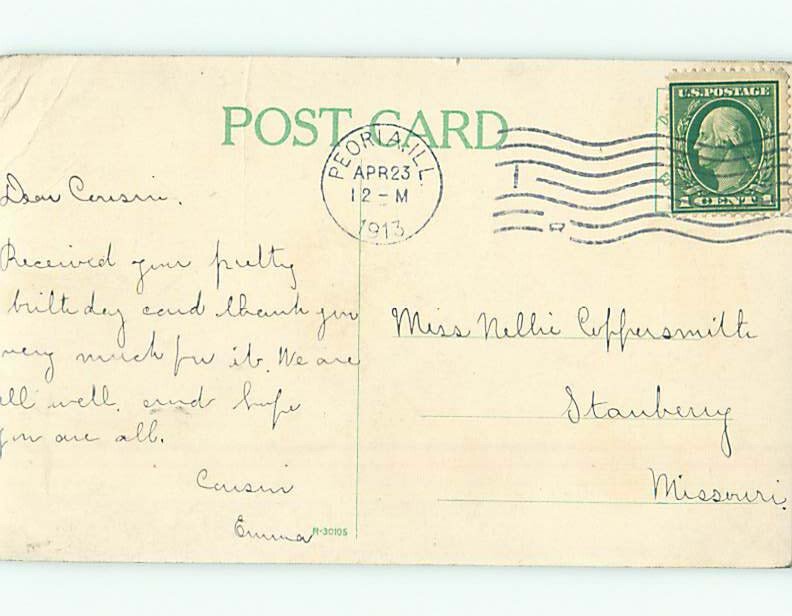 POST CARD
PEORIA, ILL.
APR 23
12 - M
1913
U.S. POSTAGE
1 CENT 1
Dear Cousin.
Received your pretty
birthday card thank you
very much for it. We are
all well. and hope
you are all.
Cousin
Emma
M-30105
Miss Nellie Coppersmith
Stanberry
Missouri.